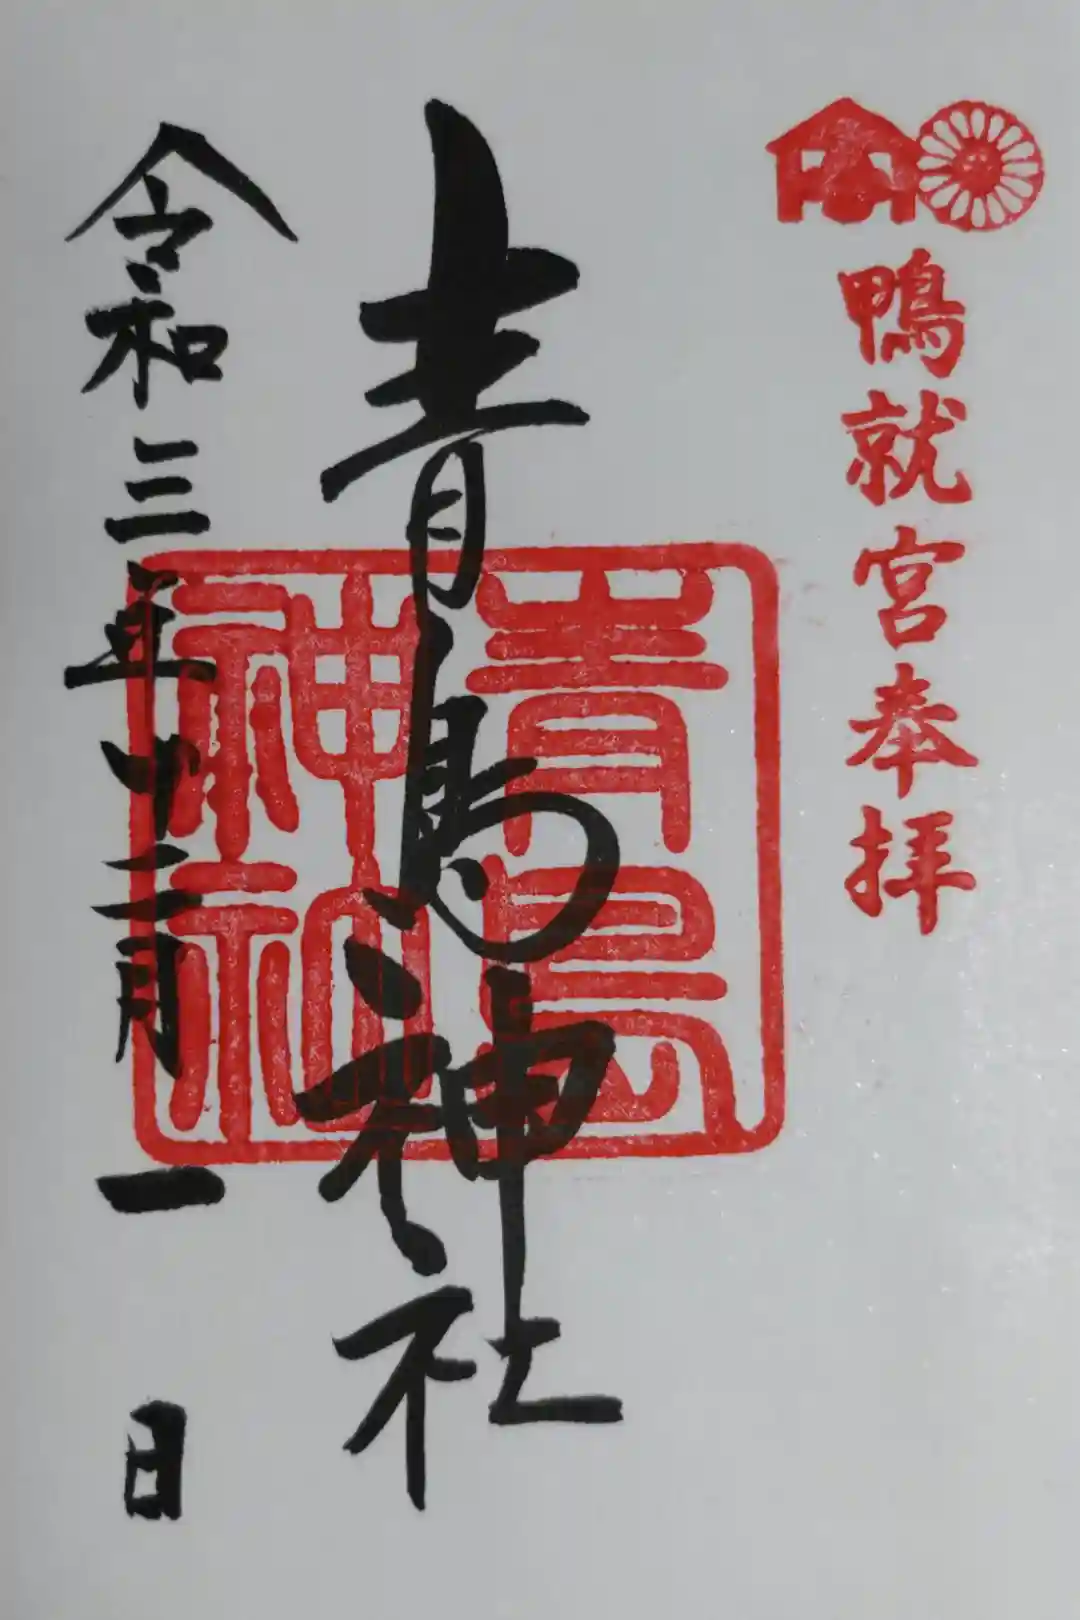 鴨就宮奉拝
青島神社
青島神社
令和三年十二月一日